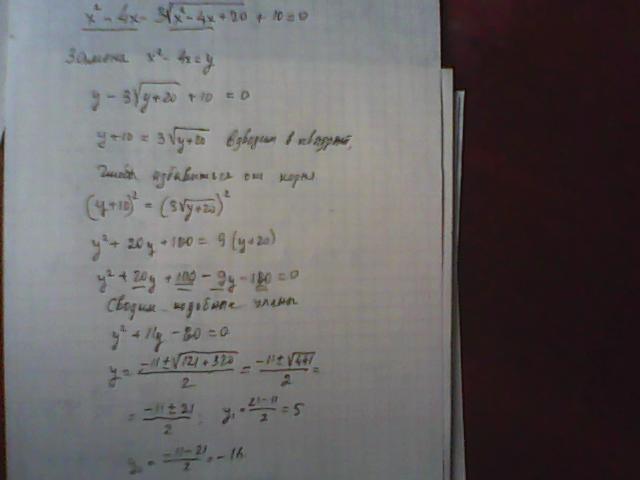 x² - 4x - 3√(x² - 4x + 20) + 10 = 0
Замена x² - 4x = y
y - 3√(y+20) + 10 = 0
y + 10 = 3√(y+20) Взводим в квадрат,
чтобы избавиться от корня
(y+10)² = (3√(y+20))²
y² + 20y + 100 = 9(y+20)
y² + 20y + 100 - 9y - 180 = 0
Сводим подобные члены
y² + 11y - 80 = 0
y = (-11 ± √(121 + 320))/2 = (-11 ± √441)/2 =
= (-11 ± 21)/2; y₁ = (21-11)/2 = 5
y₂ = (-11-21)/2 = -16